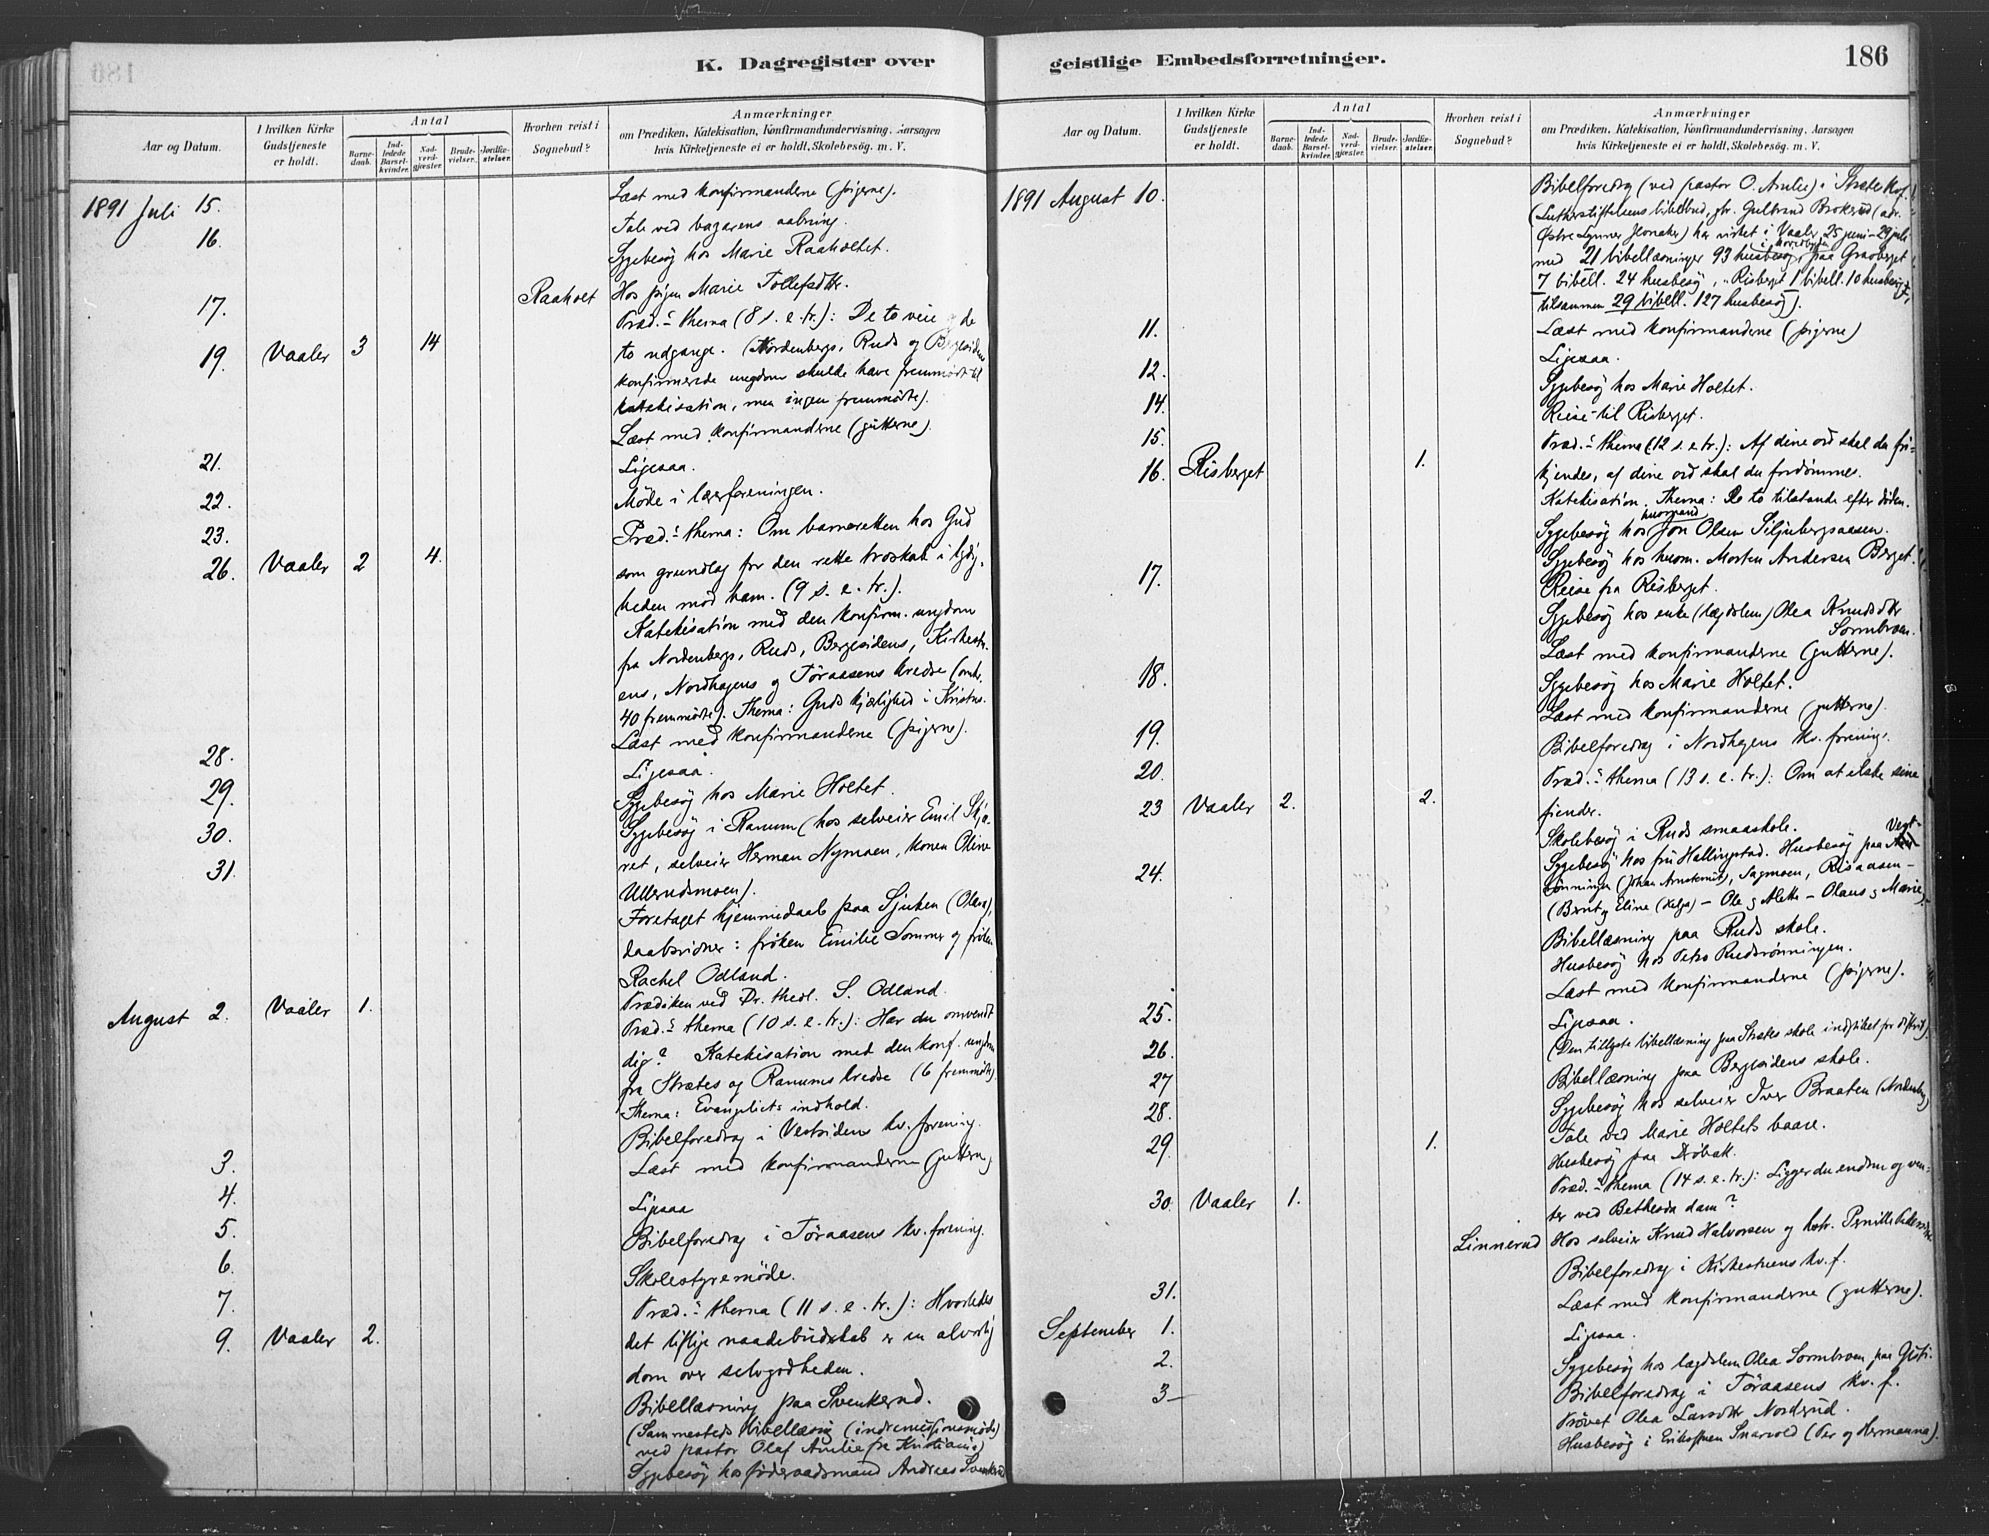 186
K. Dagregister over
Aar og Datum.
I hvilken Kirke Gudstjeneste er holdt.
Antal
Barnedaab.
Indledede Barselkvinder.
Nadverdgjester.
Brudevielser.
Jordfæstelser.
Hvorhen reist i Sognebud?
Anmærkninger
om Prædiken, Katekisation, Konfirmandundervisning, Aarsagen
hvis Kirketjeneste ei er holdt, Skolebesøg. m. V.
1891 Juli 15. Læst med konfirmanderne (pigerne).
16. Tale ved bazarens aabning.
Sygebesøg hos Marie Raaholtet.
17. Raaholt Hos pigen Marie Tollefsdtr.
19. Vaaler 3 14 Præd.s thema (8 s. e. tr.): De to veie og de
to udgange. (Nordenbergs, Ruds og Bergesidens
konfirmerede ungdom skulde have fremmødt til
katekisation, men ingen fremmødte).
21. Læst med konfirmanderne (gutterne).
22. Ligesaa.
23. Møde i lærerforeningen.
26. Vaaler 2 4. Præd.s thema: Om barneretten hos Gud
som grundlag for den rette troskab i lydig-
heden mod ham. (9 s. e. tr.).
Katekisation med den konfirm. ungdom
fra Nordenbergs, Ruds, Bergesidens, Kirkestu-
ens, Nordhagens og Töraasens kredse (omtr.
40 fremmødte). Thema: Guds kjærlighed i Kristus.
28. Læst med konfirmanderne (pigerne).
29. Ligesaa.
30. Sygebesøg hos Marie Holtet.
31. Sygebesøg i Ranum (hos selveier Emil Skja-
ret, selveier Herman Nymoen, konen Oline
Ullerudsmoen).
Foretaget hjemmedaab paa Sjuken (Olava),
daabsvidner: frøken Emilie Sommer og frøken
Rachel Odland.
August 2. Vaaler 1. Prædiken ved Dr. theol. S. Odland.
Præd.s thema (10 s. e. tr.): Har du omvendt
dig? Katekisation med den konf. ungdom
fra Strætes og Ranums kredse (6 fremmødte).
Thema: Evangeliets indhold.
3. Bibelforedrag i Vestsidens kv. forening.
4. Læst med konfirmanderne (gutterne)
5. Ligesaa
6. Bibelforedrag i Töraasens kv. forening.
7. Skolestyremöde.
9. Vaaler 2. Præd.s thema (11 s. e. tr.): Hvorledes
det liflige naadebudskab er en alvorlig
dom over selvgodheden.
Bibellæsning paa Svenkerud.
(Sammesteds bibellæsning (indremissionsmøde)
ved pastor Olaf Anulie fra Kristiania)
Sygebesøg hos föderaadsmand Andreas Svenkerud
geistlige Embedsforretninger.
186
Aar og Datum.
I hvilken Kirke Gudstjeneste er holdt.
Antal
Barnedaab.
Indledede Barselkvinder.
Nadverdgjester.
Brudevielser.
Jordfæstelser.
Hvorhen reist i Sognebud?
Anmærkninger
om Prædiken, Katekisation, Konfirmandundervisning, Aarsagen
hvis Kirketjeneste ei er holdt, Skolebesøg. m. V.
1891 August 10. Bibelforedrag (ved pastor O. Anulie) i Stræte
(Lutherstiftelsens bibelbud, hr. Gulbrand Brokerud (adr.
Østre Lynner Jevnaker) har virket i Vaaler 25 juni - 29 juli
med 21 bibellæsninger 93 husbesøg, paa Gravberget
7 bibell. 24 husbesøg, Risberget 1 bibell. 10 husbesøg,
tilsammen 29 bibell. 127 husbesøg).
11. Læst med konfirmanderne (pigerne)
12. Ligesaa.
14. Sygebesøg hos Marie Holtet.
15. Reise til Risberget.
16. Risberget 1. Præd.s thema (12 s. e tr.): Af dine ord skal du fri-
kjendes, af dine ord skal du fordömmes.
Katekisation. Thema: De to tilstande efter döden.
Sygebesøg hos husmand Jon Olsen Siljubergsaasen.
17. Sygebesøg hos husm. Morten Andersen Berget.
Reise fra Risberget.
Sygebesøg hos enke (lægdslem) Olea Knudsdtr
Sormbroen.
18. Læst med konfirmanderne (gutterne).
Sygebesøg hos Marie Holtet.
19. Læst med konfirmanderne (gutterne).
20. Bibelforedrag i Nordhagens kv. forening.
23 Vaaler 2. 2. Præd.s thema (13 s. e. tr.): Om at elske sine
fiender.
24. Skolebesøg i Ruds smaaskole.
Sygebesøg hos fru Hallingstad. Husbesøg paa
Sagmoen, Risaasen -
(Bernt og Eline - Ole og Alette - Olaus og Marie).
Bibellæsning paa Ruds skole.
Husbesøg hos Petro Rudsrønningen.
25. Læst med konfirmanderne (pigerne).
26. Ligesaa.
(Den tillyste bibellæsning paa Strætes skole indstillet for difterit).
27 Bibellæsning paa Bergesidens skole.
28. Sygebesøg hos selveier Iver Braaten (Nordenberg)
29. 1. Tale ved Marie Holtets baare.
Husbesøg paa Drøbak.
30. Vaaler 1. Præd.s thema (14 s. e. tr.): Ligger du endnu og ven-
ter ved Bethesda dam?
Linnerud Hos selveier Knud Halvorsen og hstr. Pernille Pedersdtr
31. Bibelforedrag i Kirkestuens kv. f.
September 1. Læst med konfirmanderne (gutterne).
2. Ligesaa.
3 Sygebesøg hos lægdslem Olea Sormbroen paa
Bibelforedrag i Töraasens kv. f.
Prövet Olea Larsdtr Nordsrud.
Husbesøg i Snarvold (Per og Hermanna).